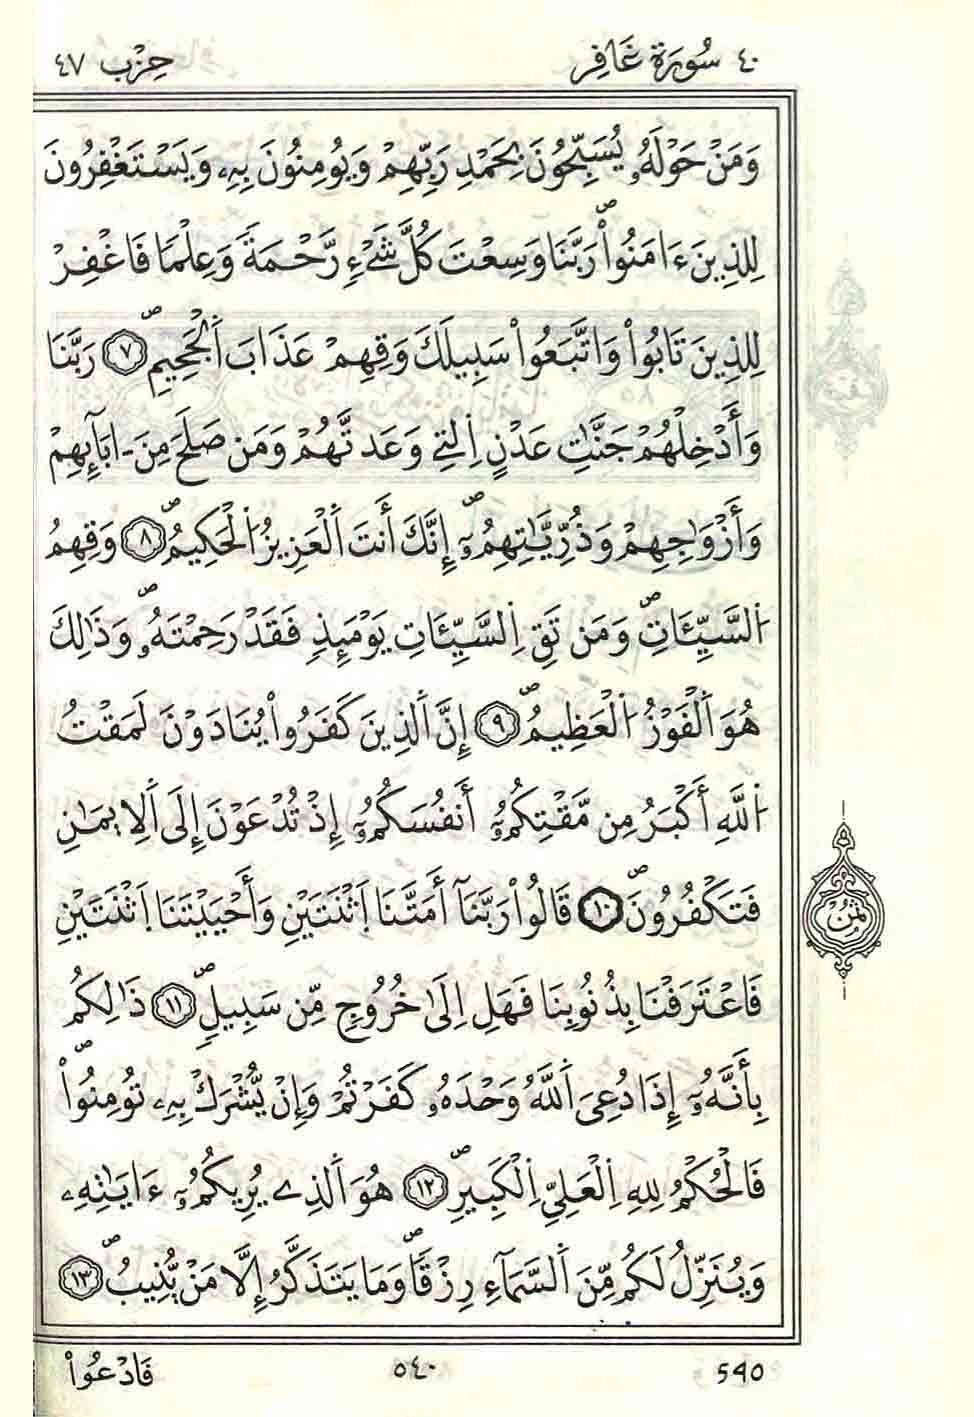 ٤٠ سُورَةُ غَافِر
حِزْب ٤٧
وَمَنْ حَوْلَهُۥ يُسَبِّحُونَ بِحَمْدِ رَبِّهِمْ وَيُومِنُونَ بِهِۦ وَيَسْتَغْفِرُونَ
لِلذِينَ ءَامَنُواْۖ رَبَّنَا وَسِعْتَ كُلَّ شَےْءٖ رَّحْمَةٗ وَعِلْماٗ فَاغْفِرْ
لِلذِينَ تَابُواْ وَاتَّبَعُواْ سَبِيلَكَ وَقِهِمْ عَذَابَ اَ۬لْجَحِيمِۖ ٧ رَبَّنَا
وَأَدْخِلْهُمْ جَنَّٰتِ عَدْنٍ اِ۬لتِے وَعَدتَّهُمْ وَمَن صَلَحَ مِنَ ابَآئِهِمْ
وَأَزْوَٰجِهِمْ وَذُرِّيَّٰتِهِمُۥٓۖ إِنَّكَ أَنتَ اَ۬لْعَزِيزُ اُ۬لْحَكِيمُۖ ٨ وَقِهِمُ
اُ۬لسَّيِّـَٔاتِۖ وَمَن تَقِ اِ۬لسَّيِّـَٔاتِ يَوْمَئِذٖ فَقَدْ رَحِمْتَهُۥۖ وَذَٰلِكَ
هُوَ اَ۬لْفَوْزُ اُ۬لْعَظِيمُۖ ٩ إِنَّ اَ۬لذِينَ كَفَرُواْ يُنَادَوْنَ لَمَقْتُ
اُ۬للَّهِ أَكْبَرُ مِن مَّقْتِكُمُۥٓ أَنفُسَكُمُۥٓ إِذْ تُدْعَوْنَ إِلَى اَ۬لِايمَٰنِ
فَتَكْفُرُونَۖ ١٠ قَالُواْ رَبَّنَآ أَمَتَّنَا اَ۪ثْنَتَيْنِ وَأَحْيَيْتَنَا اَ۪ثْنَتَيْنِ
فَاعْتَرَفْنَا بِذُنُوبِنَا فَهَلِ اِلَىٰ خُرُوجٖ مِّن سَبِيلٖۖ ١١ ذَٰلِكُم
بِأَنَّهُۥٓ إِذَا دُعِيَ اَ۬للَّهُ وَحْدَهُۥ كَفَرْتُمْ وَإِنْ يُّشْرَكْ بِهِۦ تُومِنُواْۖ
فَالْحُكْمُ لِلهِ اِ۬لْعَلِيِّ اِ۬لْكَبِيرِۖ ١٢ هُوَ اَ۬لذِے يُرِيكُمُۥٓ ءَايَٰتِهِۦ
وَيُنَزِّلُ لَكُم مِّنَ اَ۬لسَّمَآءِ رِزْقاٗۖ وَمَا يَتَذَكَّرُ إِلَّا مَنْ يُّنِيبُۖ ١٣
ثمن
٥٩٥
٥٤٠
فَادْعُواْ